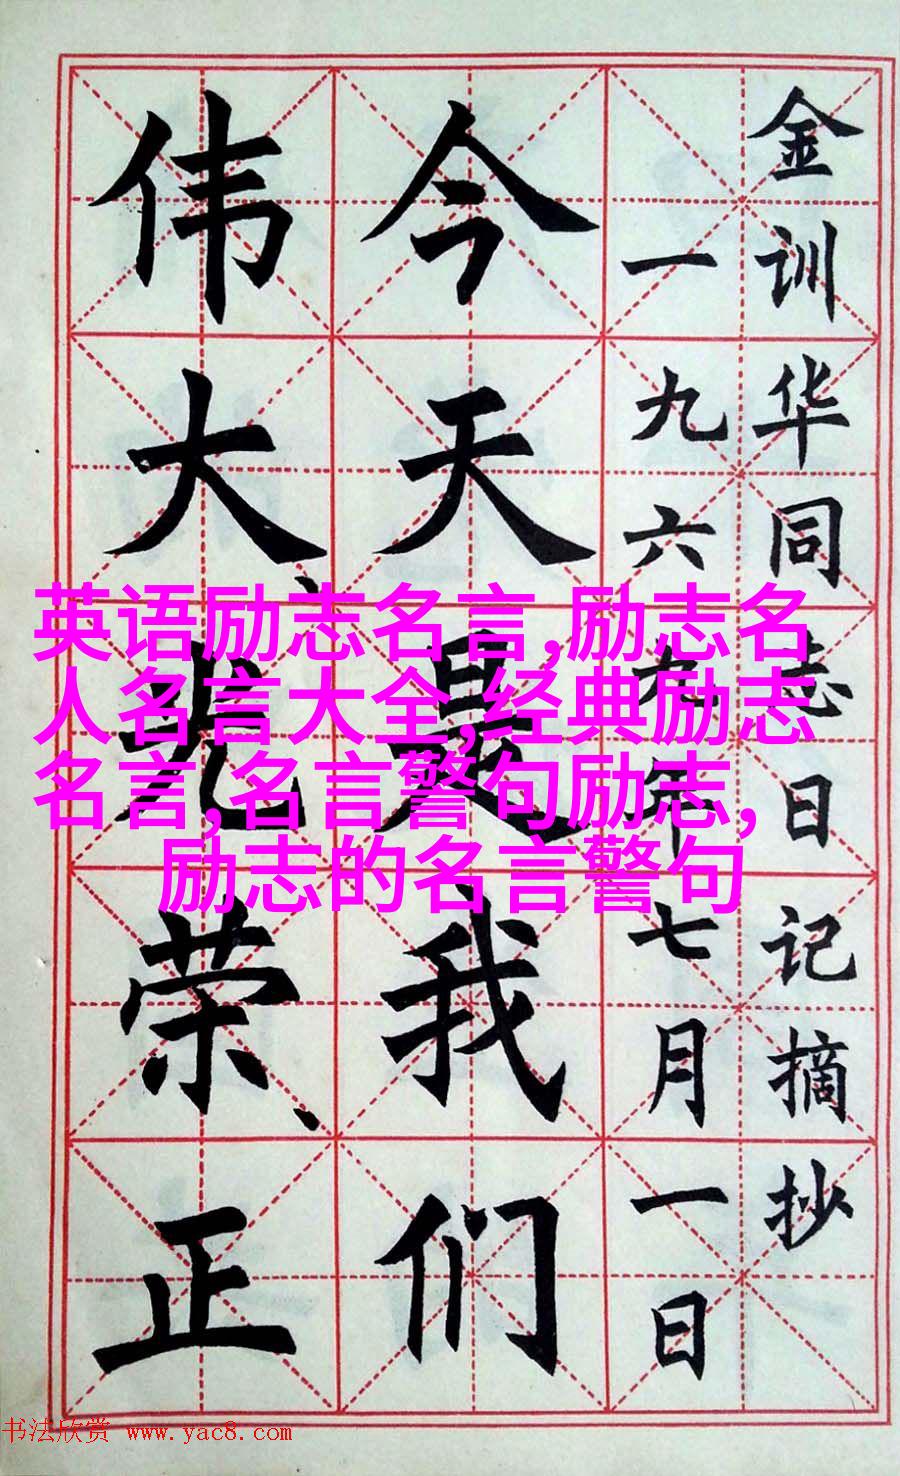 金训华同志日记摘抄
一九六九年七月一日
今天是我们
伟大、光荣、正
英语励志名言,励志名
人名言大全,经典励志
名言,名言警句励志,
励志的名言警句
书法欣赏 www.yac8.com